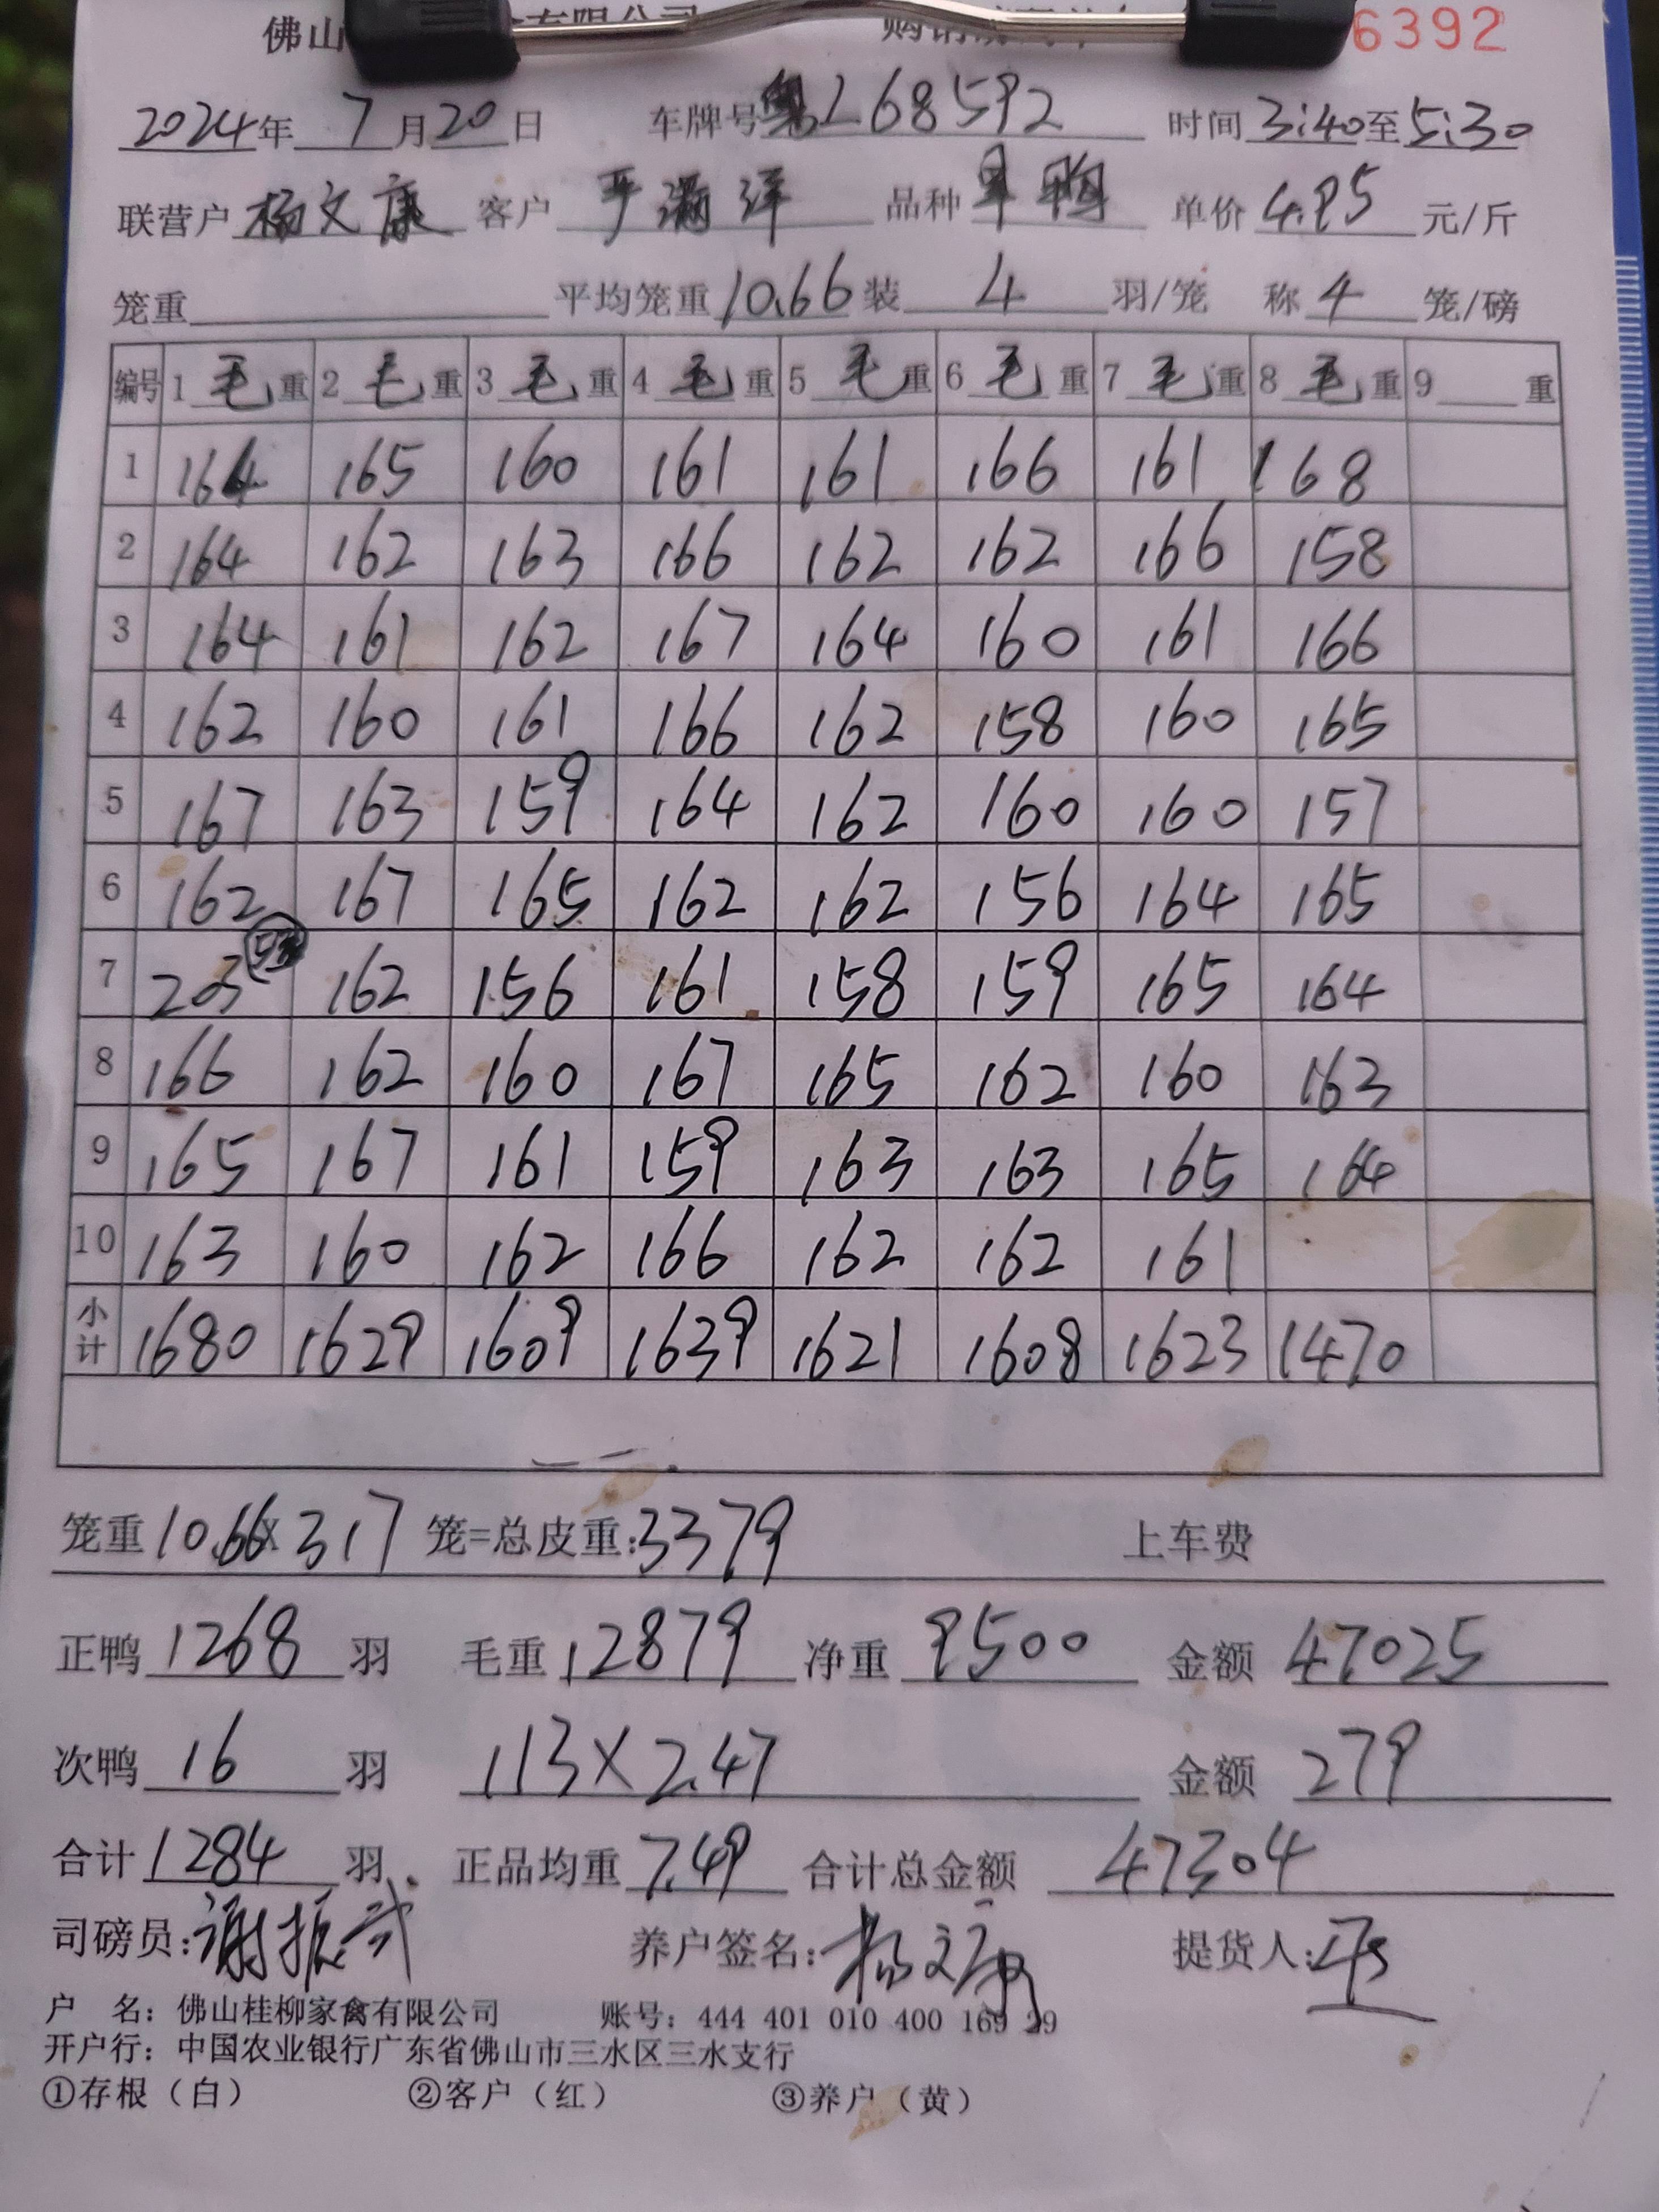 佛山 有限公司 购销 6392
2024年 7月20日 车牌号 粤L68592 时间 3:40至5:30
联营户 杨文康 客户 严满洋 品种 旱鸭 单价 4.95 元/斤
笼重 平均笼重 10.66 装 4 羽/笼 称 4 笼/磅
编号 1 毛 重 2 毛 重 3 毛 重 4 毛 重 5 毛 重 6 毛 重 7 毛 重 8 毛 重 9 重
1 164 165 160 161 161 166 161 168
2 164 162 163 166 162 162 166 158
3 164 161 162 167 164 160 161 166
4 162 160 161 166 162 158 160 165
5 167 163 159 164 162 160 160 157
6 162 167 165 162 162 156 164 165
7 203 162 156 161 158 159 165 164
8 166 162 160 167 165 162 160 163
9 165 167 161 159 163 163 165 164
10 163 160 162 166 162 162 161
小计 1680 1629 1609 1639 1621 1608 1623 1470
笼重 10.66 x 317 笼=总皮重:3379 上车费
正鸭 1268 羽 毛重 12879 净重 9500 金额 47025
次鸭 16 羽 113 x 2.47 金额 279
合计 1284 羽 正品均重 7.49 合计总金额 47304
司磅员:谢振武 养户签名:杨文康 提货人:
户 名:佛山桂柳家禽有限公司 账号:444 401 010 400 169 29
开户行:中国农业银行广东省佛山市三水区三水支行
①存根(白) ②客户(红) ③养户(黄)